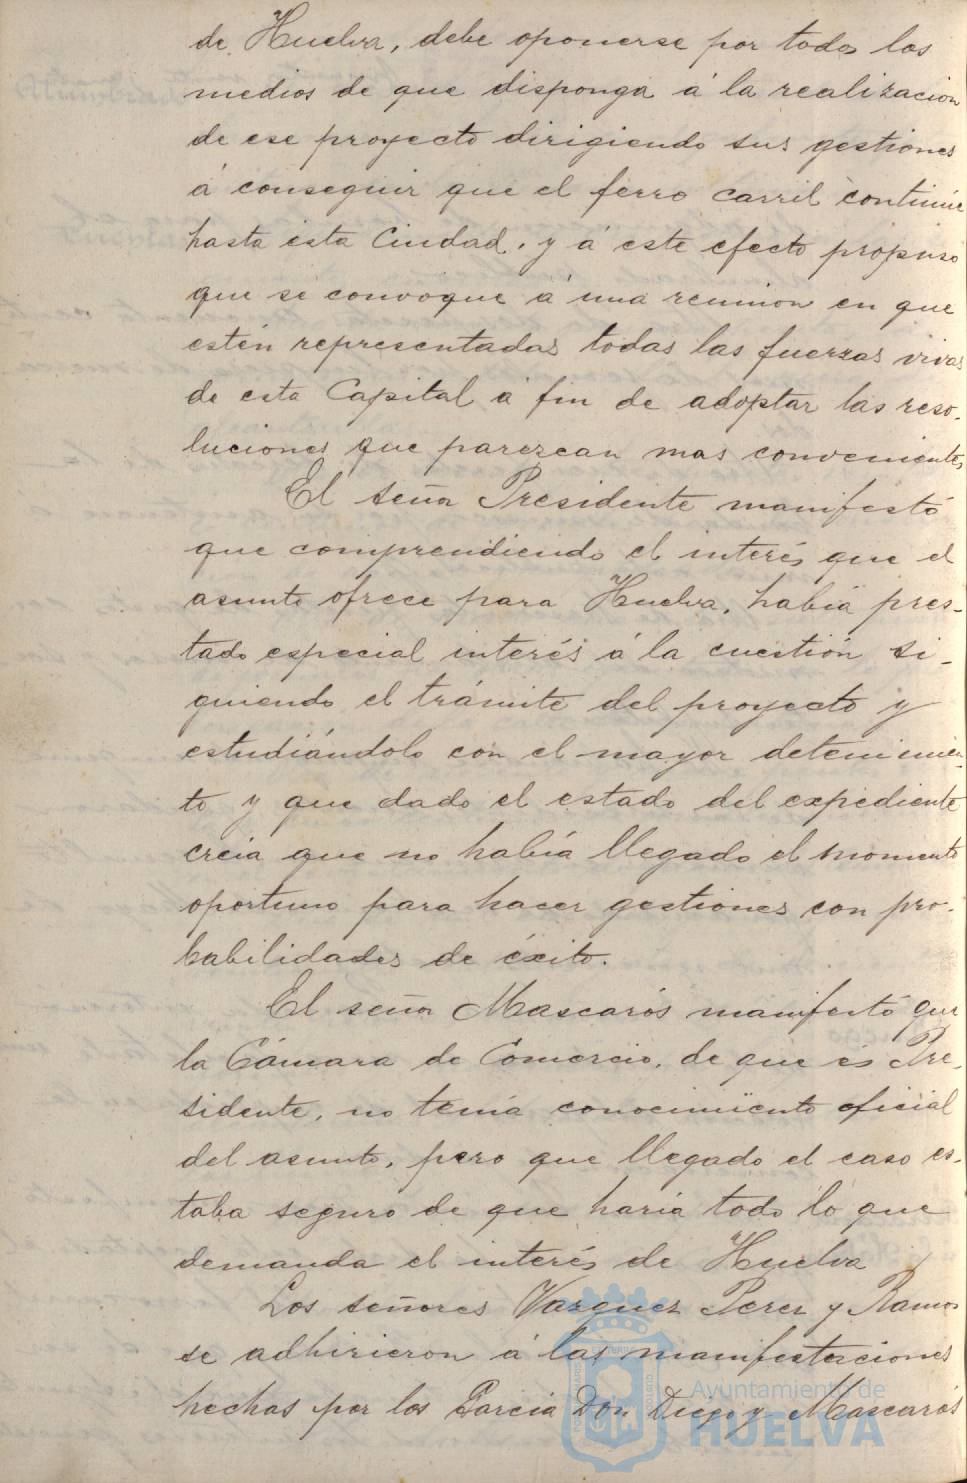 de Huelva, debe oponerse por todos los
medios de que disponga á la realizacion
de ese proyecto dirigiendo sus gestiones
á conseguir que el ferro carril continúe
hasta esta Ciudad, y á este efecto propuso
que se convoque á una reunion en que
estén representadas todas las fuerzas vivas
de esta Capital á fin de adoptar las reso-
luciones que parezcan mas convenientes
El señor Presidente manifestó
que comprendiendo el interés que el
asunto ofrece para Huelva, había pres-
tado especial interés á la cuestión si-
guiendo el trámite del proyecto y
estudiándolo con el mayor detenimien-
to y que dado el estado del expediente
creia que no había llegado el momento
oportuno para hacer gestiones con pro-
babilidades de éxito.
El señor Mascarós manifestó que
la Cámara de Comercio, de que es Pre-
sidente, no tenía conocimiento oficial
del asunto, pero que llegado el caso es-
taba seguro de que haría todo lo que
demanda el interés de Huelva
Los señores Vazquez Perez y Ramos
se adhirieron á las manifestaciones
hechas por los Garcia Don Diego y Mascarós
Ayuntamiento de
HUELVA